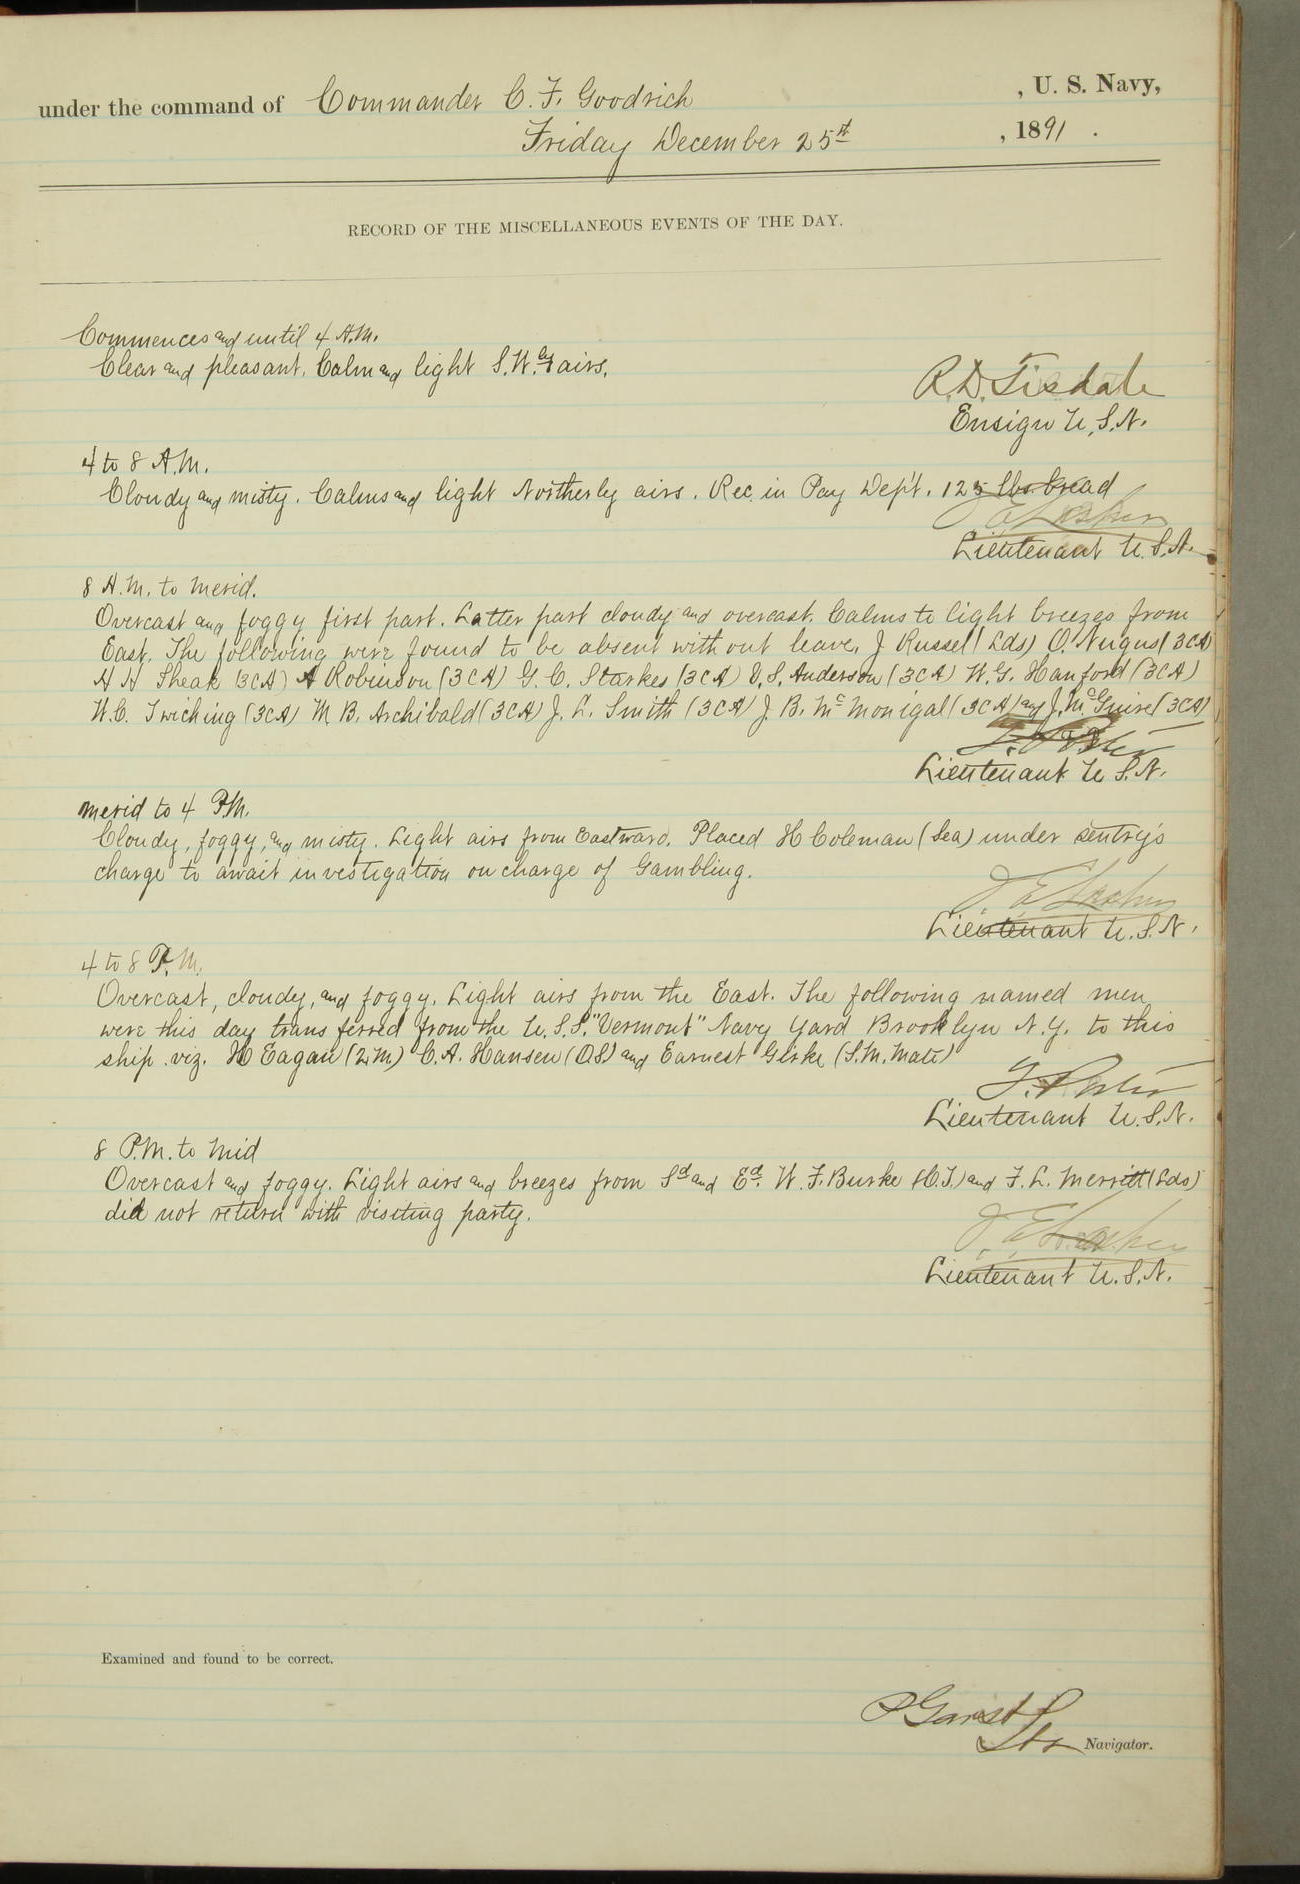 under the command of Commander C. F. Goodrich , U. S. Navy,
Friday December 25th , 1891 .
RECORD OF THE MISCELLANEOUS EVENTS OF THE DAY.
Commences and until 4 A.M.
Clear and pleasant. Calm and light S.W.ly airs.
R.D. Tisdale
Ensign U.S.N.
4 to 8 A.M.
Cloudy and misty. Calms and light Northerly airs. Rec. in Pay Dep't. 125 lbs. bread
Lieutenant U.S.N.
8 A.M. to Merid.
Overcast and foggy first part. Latter part cloudy and overcast. Calms to light breezes from
East. The following were found to be absent without leave. J Russel (Lds) O. Nugus (3CA)
H H Sheak (3CA) A Robinson (3CA) G. C. Starkes (3CA) V. S. Anderson (3CA) W. G. Hanford (3CA)
W.C. Twiching (3CA) M B. Archibald (3CA) J. L. Smith (3CA) J. B. Mc Monigal (3CA) and J. McGuire (3CA)
Lieutenant U.S.N.
Merid to 4 P.M.
Cloudy, foggy, and misty. Light airs from Eastward. Placed H Coleman (Sea) under sentry's
charge to await investigation on charge of Gambling.
Lieutenant U.S.N.
4 to 8 P.M.
Overcast, cloudy, and foggy. Light airs from the East. The following named men
were this day transferred from the U.S.S. "Vermont" Navy Yard Brooklyn N.Y. to this
ship. viz. H Eagan (2.M.) C. A. Hansen (OS) and Earnest Girke (S.M. Mate)
Lieutenant U.S.N.
8 P.M. to Mid
Overcast and foggy. Light airs and breezes from Sd and Ed. W. F. Burke (C.T.) and F. L. Merritt (Lds)
did not return with visiting party.
Lieutenant U.S.N.
Examined and found to be correct.
P Garst
Lt. Navigator.